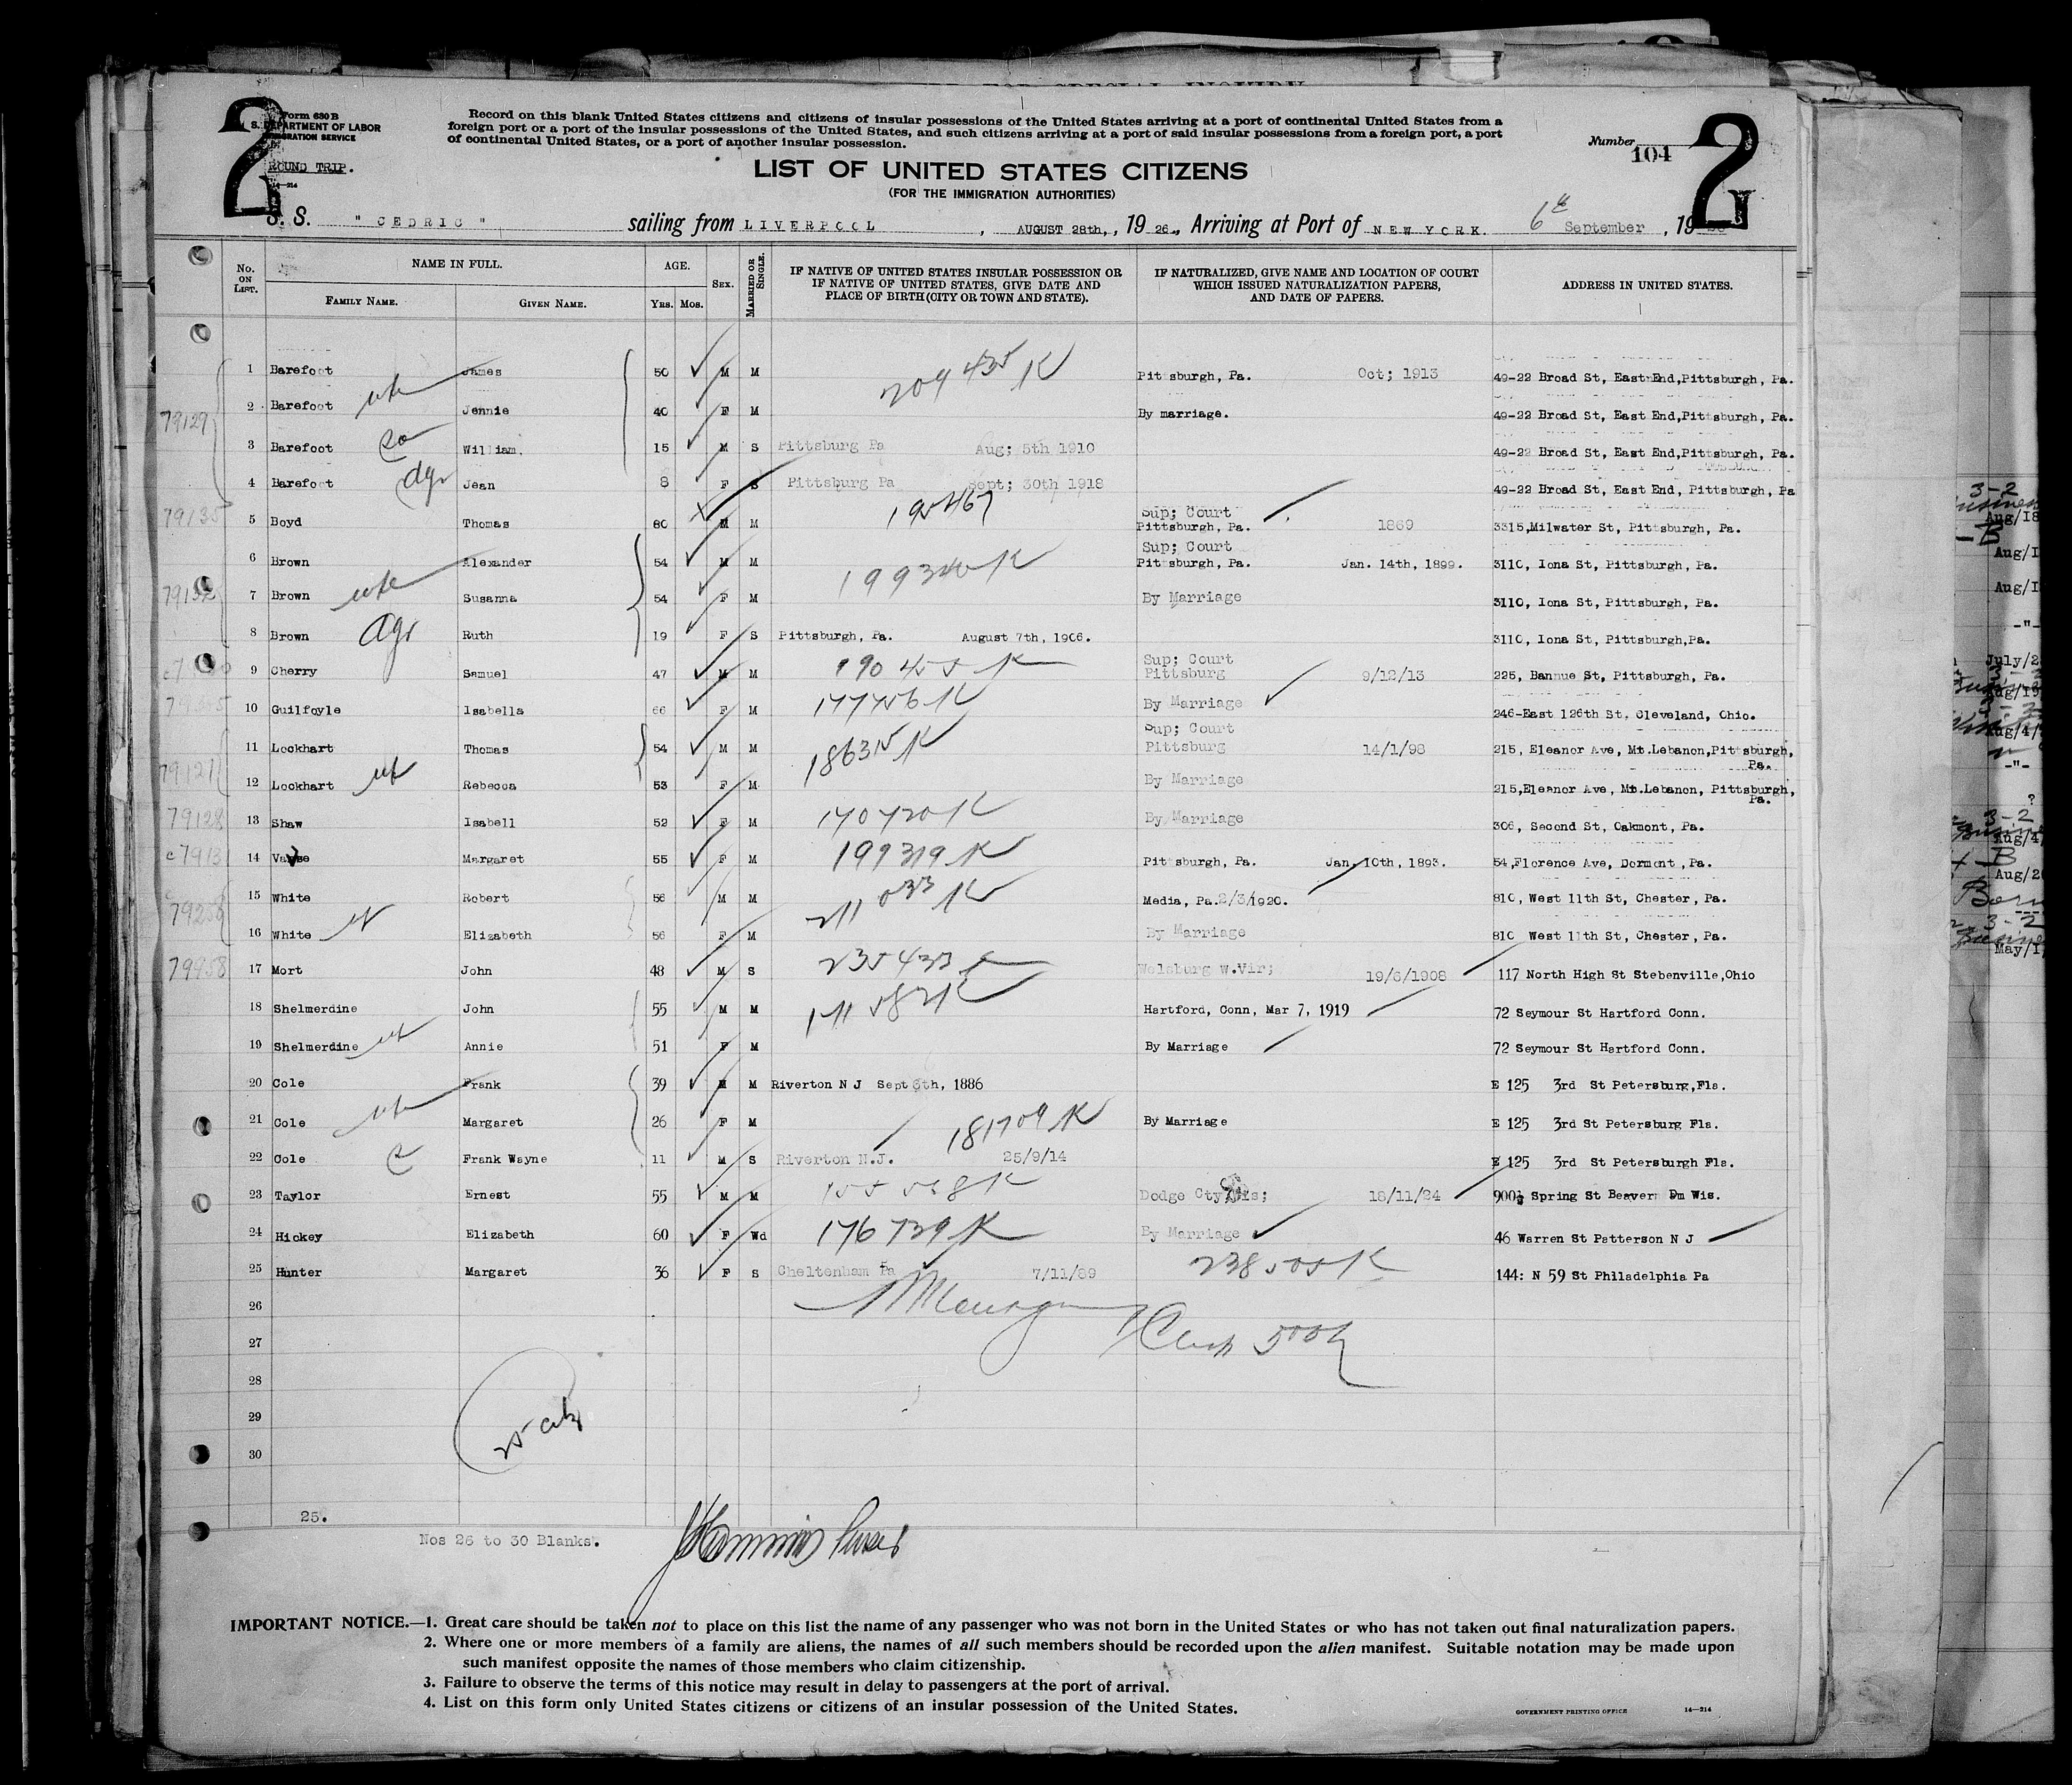 2 2
Form 630 B
S. DEPARTMENT OF LABOR
IMMIGRATION SERVICE
ROUND TRIP.
14—214
Record on this blank United States citizens and citizens of insular possessions of the United States arriving at a port of continental United States from a
foreign port or a port of the insular possessions of the United States, and such citizens arriving at a port of said insular possessions from a foreign port, a port
of continental United States, or a port of another insular possession.
Number 104
LIST OF UNITED STATES CITIZENS
(FOR THE IMMIGRATION AUTHORITIES)
S. S. " CEDRIC " sailing from LIVERPOOL, AUGUST 28th,, 19 26., Arriving at Port of NEW YORK. 6th September, 19
No. ON LIST. NAME IN FULL. AGE. SEX. MARRIED OR SINGLE. IF NATIVE OF UNITED STATES INSULAR POSSESSION OR IF NATIVE OF UNITED STATES, GIVE DATE AND PLACE OF BIRTH (CITY OR TOWN AND STATE). IF NATURALIZED, GIVE NAME AND LOCATION OF COURT WHICH ISSUED NATURALIZATION PAPERS, AND DATE OF PAPERS. ADDRESS IN UNITED STATES.
FAMILY NAME. GIVEN NAME. YRS. MOS.
1 Barefoot James 50 M M 209435 K Pittsburgh, Pa. Oct; 1913 49-22 Broad St, East End, Pittsburgh, Pa.
79129 2 Barefoot wife Jennie 40 F M By marriage. 49-22 Broad St, East End, Pittsburgh, Pa.
3 Barefoot so William. 15 M S Pittsburg Pa Aug; 5th 1910 49-22 Broad St, East End, Pittsburgh, Pa.
4 Barefoot dgr Jean 8 F S Pittsburg Pa Sept; 30th 1918 49-22 Broad St, East End, Pittsburgh, Pa
79135 5 Boyd Thomas 60 M M 195467 Sup; Court Pittsburgh, Pa. 1869 3315, Milwater St, Pittsburgh, Pa.
6 Brown Alexander 54 M M 199340 K Sup; Court Pittsburgh, Pa. Jan. 14th, 1899. 3110, Iona St, Pittsburgh, Pa.
7 Brown wife Susanna 54 F M By Marriage 3110, Iona St, Pittsburgh, Pa.
8 Brown dgr Ruth 19 F S Pittsburgh, Pa. August 7th, 1906. 3110, Iona St, Pittsburgh, Pa.
9 Cherry Samuel 47 M M 190455 K Sup; Court Pittsburg 9/12/13 225, Bannue St, Pittsburgh, Pa.
10 Guilfoyle Isabella 66 F M 177456 K By Marriage 246-East 126th St, Cleveland, Ohio.
11 Lockhart Thomas 54 M M 186315 K Sup; Court Pittsburg 14/1/98 215, Eleanor Ave, Mt.Lebanon, Pittsburgh, Pa.
79127 12 Lockhart wf Rebecca 53 F M By Marriage 215, Eleanor Ave, Mt.Lebanon, Pittsburgh, Pa.
79128 13 Shaw Isabell 52 F M 140420 K By Marriage 306, Second St, Oakmont, Pa.
14 Margaret 55 F M 199319 K Pittsburgh, Pa. Jan. 10th, 1893. 54, Florence Ave, Dormont, Pa.
15 White Robert 56 M M 211033 K Media, Pa. 2/3/1920. 810, West 11th St, Chester, Pa.
16 White wf Elizabeth 56 F M By Marriage 810 West 11th St, Chester, Pa.
79958 17 Mort John 48 M S 235433 Welsburg w.Vir; 19/6/1908 117 North High St Stebenville, Ohio
18 Shelmerdine John 55 M M Hartford, Conn, Mar 7, 1919 72 Seymour St Hartford Conn.
19 Shelmerdine wf Annie 51 F M By Marriage 72 Seymour St Hartford Conn.
20 Cole Frank 39 M M Riverton N J Sept 6th, 1886 E 125 3rd St Petersburg, Fla.
21 Cole wife Margaret 26 F M 181709 K By Marriage E 125 3rd St Petersburg Fla.
22 Cole Frank Wayne 11 M S Riverton N.J. 25/9/14 E 125 3rd St Petersburgh Fla.
23 Taylor Ernest 55 M M 155568 K Dodge Cty Wis; 18/11/24 900½ Spring St Beaver Dm Wis.
24 Hickey Elizabeth 60 F Wd 176739 K By Marriage 46 Warren St Patterson N J
25 Hunter Margaret 36 F S Cheltenham Pa 7/11/89 238505 K 144: N 59 St Philadelphia Pa
26
27
28
29
30
25.
Nos 26 to 30 Blanks.
IMPORTANT NOTICE.—1. Great care should be taken not to place on this list the name of any passenger who was not born in the United States or who has not taken out final naturalization papers.
2. Where one or more members of a family are aliens, the names of all such members should be recorded upon the alien manifest. Suitable notation may be made upon
such manifest opposite the names of those members who claim citizenship.
3. Failure to observe the terms of this notice may result in delay to passengers at the port of arrival.
4. List on this form only United States citizens or citizens of an insular possession of the United States.
GOVERNMENT PRINTING OFFICE 14—214